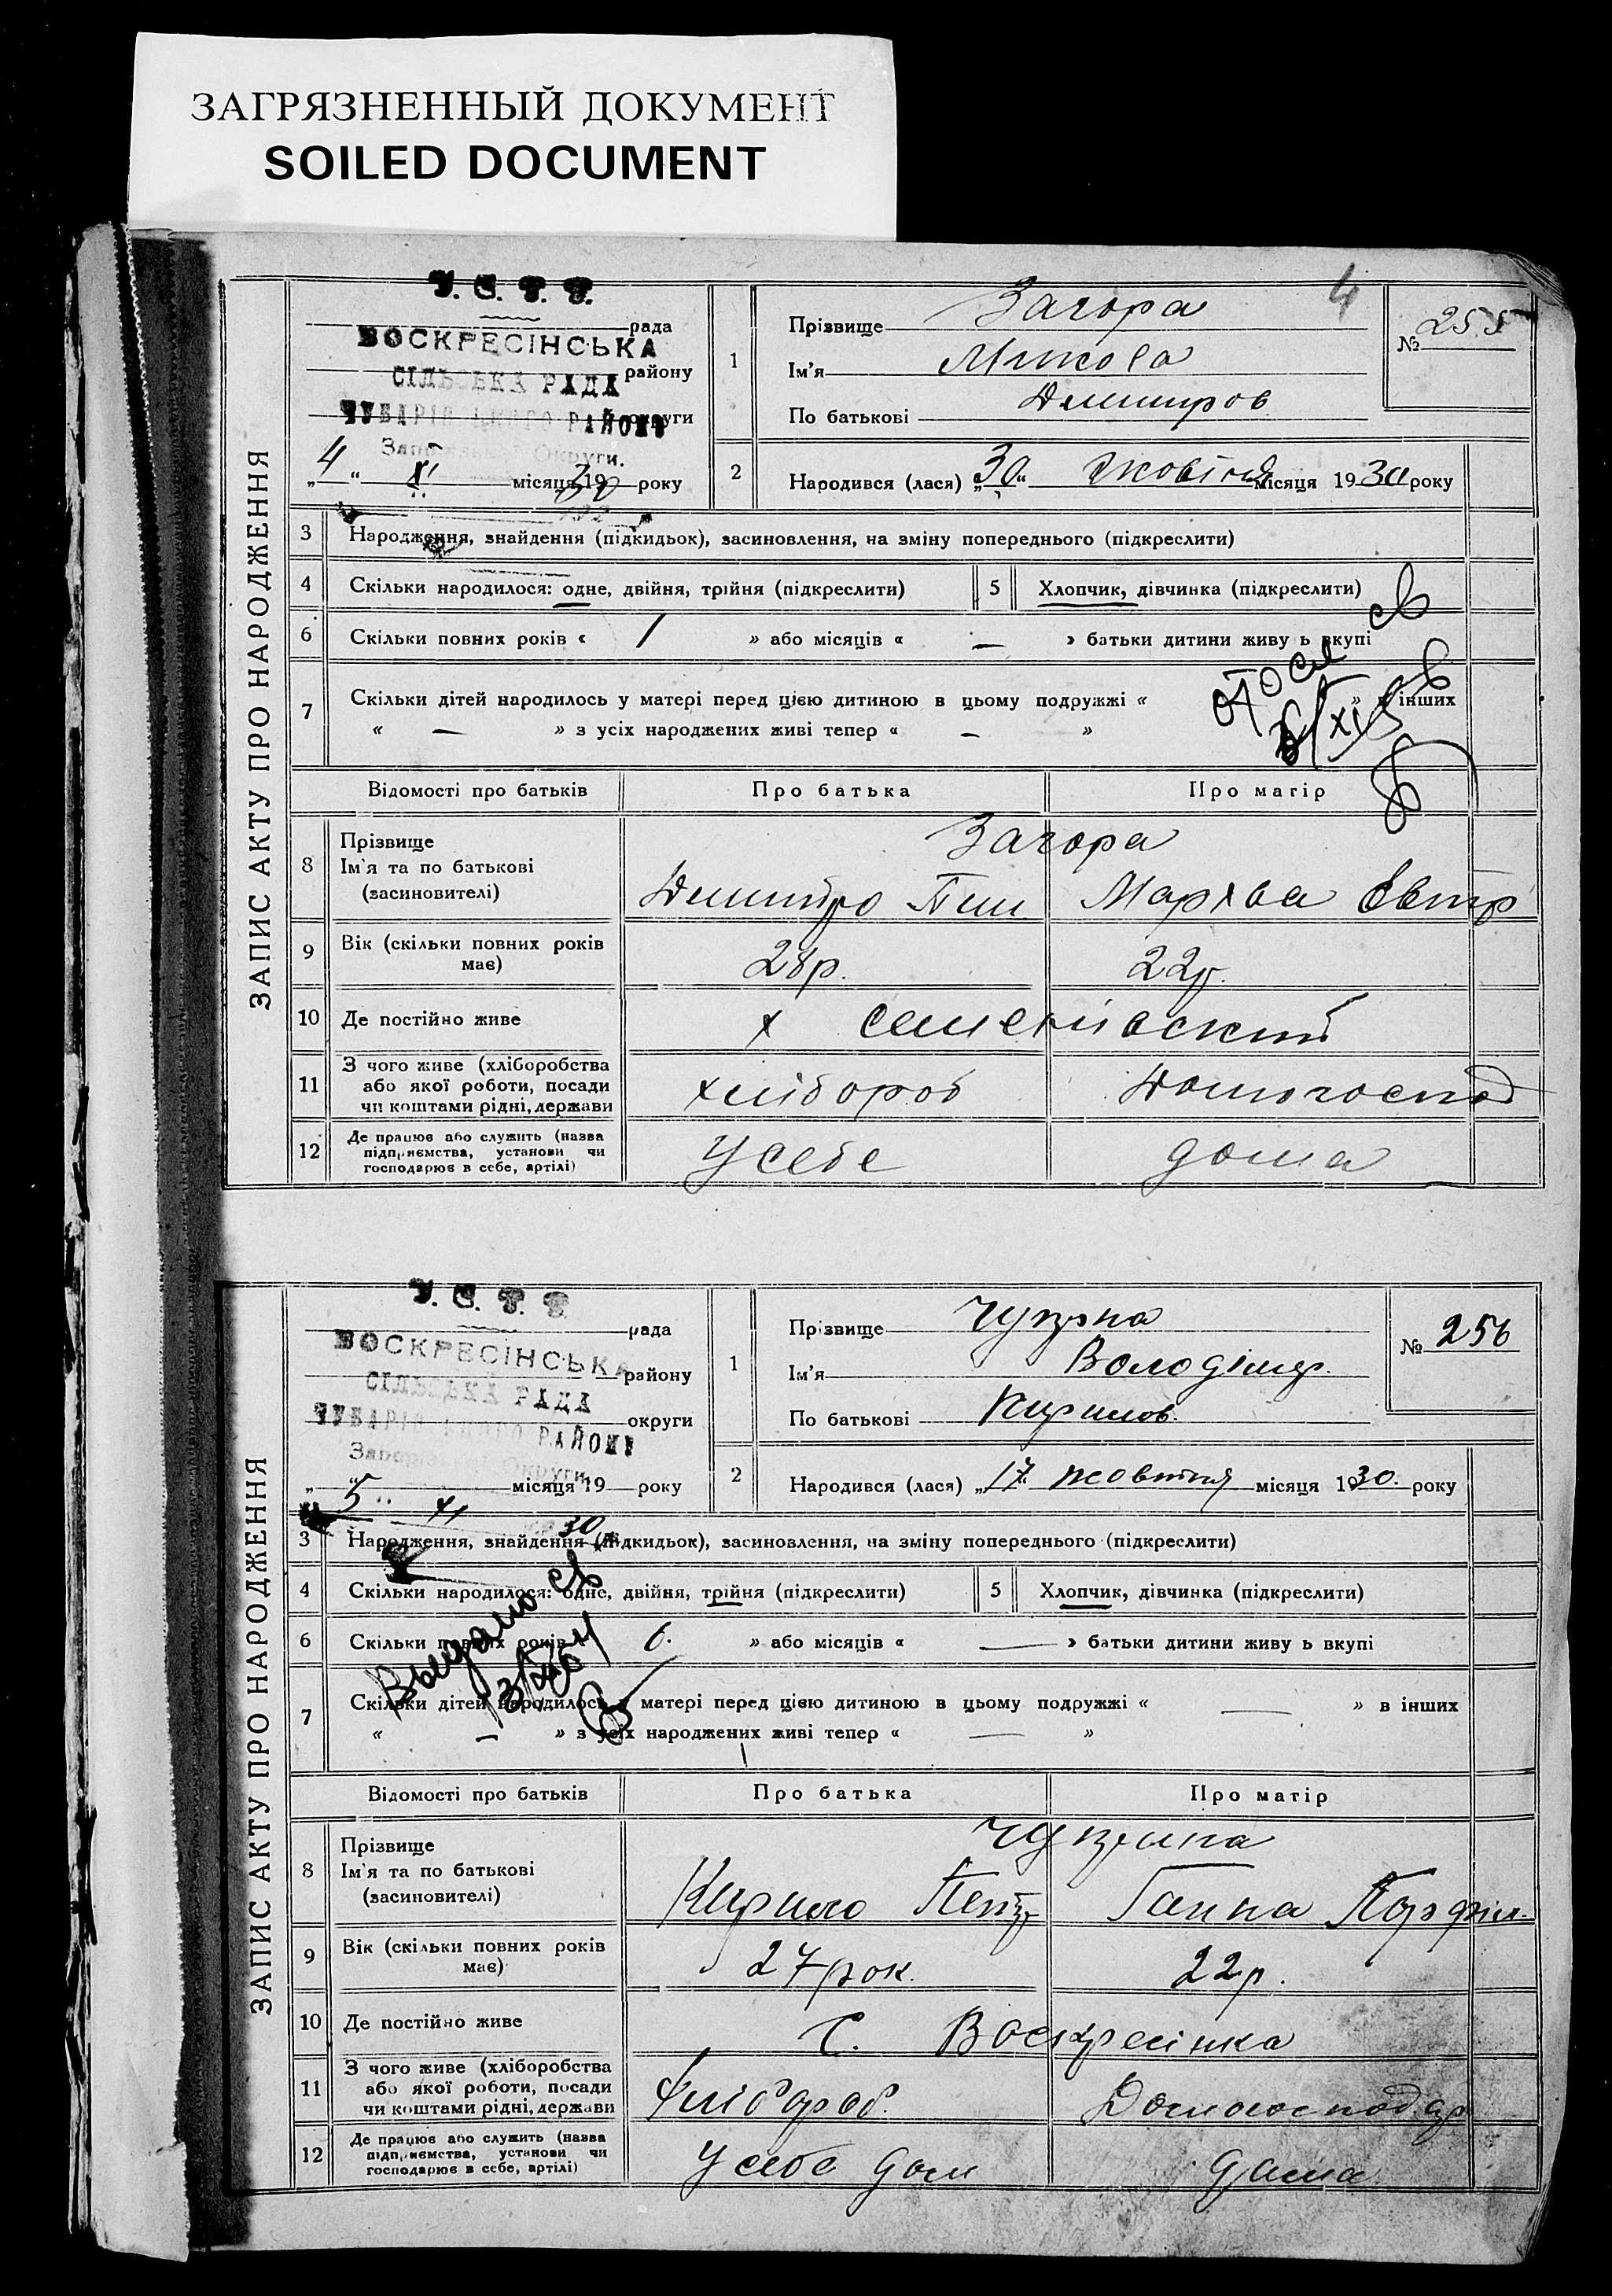 ЗАГРЯЗНЕННЫЙ ДОКУМЕНТ
SOILED DOCUMENT
4
ЗАПИС АКТУ ПРО НАРОДЖЕННЯ
У. С. Р. Р.
рада
ВОСКРЕСІНСЬКА
району
СІЛЬСЬКА РАДА
округи
ЧУБАРІВСЬКОГО РАЙОНУ
Запорізької Округи.
„4“ XI місяця 1930 року
1
Прізвище Загора
Ім'я Микола
По батькові Дмитров
№ 255
2
Народився (лася) „30“ Жовтня місяця 1930 року
3 Народження, знайдення (підкидьок), засиновлення, на зміну попереднього (підкреслити)
4 Скільки народилося: одне, двійня, трійня (підкреслити)
5 Хлопчик, дівчинка (підкреслити)
6 Скільки повних років « 1 » або місяців « — » батьки дитини живу ь вкупі
7 Скільки дітей народилось у матері перед цією дитиною в цьому подружжі « » в інших
« — » з усіх народжених живі тепер « — »
Відомості про батьків
Про батька
Про матір
8 Прізвище
Ім'я та по батькові
(засиновителі)
Загора
Дмитро
9 Вік (скільки повних років має)
28р.
22р.
10 Де постійно живе
х
11 З чого живе (хліборобства
або якої роботи, посади
чи коштами рідні, держави
хлібороб
Домогоспод
12 Де працює або служить (назва
підприємства, установи чи
господарює в себе, артілі)
У себе
дома
ЗАПИС АКТУ ПРО НАРОДЖЕННЯ
У. С. Р. Р.
рада
ВОСКРЕСІНСЬКА
району
СІЛЬСЬКА РАДА
округи
ЧУБАРІВСЬКОГО РАЙОНУ
Запорізької Округи.
„ “ місяця 19 року
5 XI 30
1
Прізвище
Ім'я Володімир.
По батькові Кирилов.
№ 256
2
Народився (лася) „17 жовтня місяця 1930. року
3 Народження, знайдення (підкидьок), засиновлення, на зміну попереднього (підкреслити)
4 Скільки народилося: одне, двійня, трійня (підкреслити)
5 Хлопчик, дівчинка (підкреслити)
6 Скільки повних років 6. » або місяців « — » батьки дитини живу ь вкупі
Выдано св
7 Скільки дітей народилось у матері перед цією дитиною в цьому подружжі « — » в інших
« — » з усіх народжених живі тепер « — »
Відомості про батьків
Про батька
Про матір
8 Прізвище
Ім'я та по батькові
(засиновителі)
Кирило Петр
Ганна Порфил.
9 Вік (скільки повних років має)
27 рок.
22 р.
10 Де постійно живе
С. Воскресінка
11 З чого живе (хліборобства
або якої роботи, посади
чи коштами рідні, держави
Хлібороб.
Домогосподар
12 Де працює або служить (назва
підприємства, установи чи
господарює в себе, артілі)
У себе дом
дома